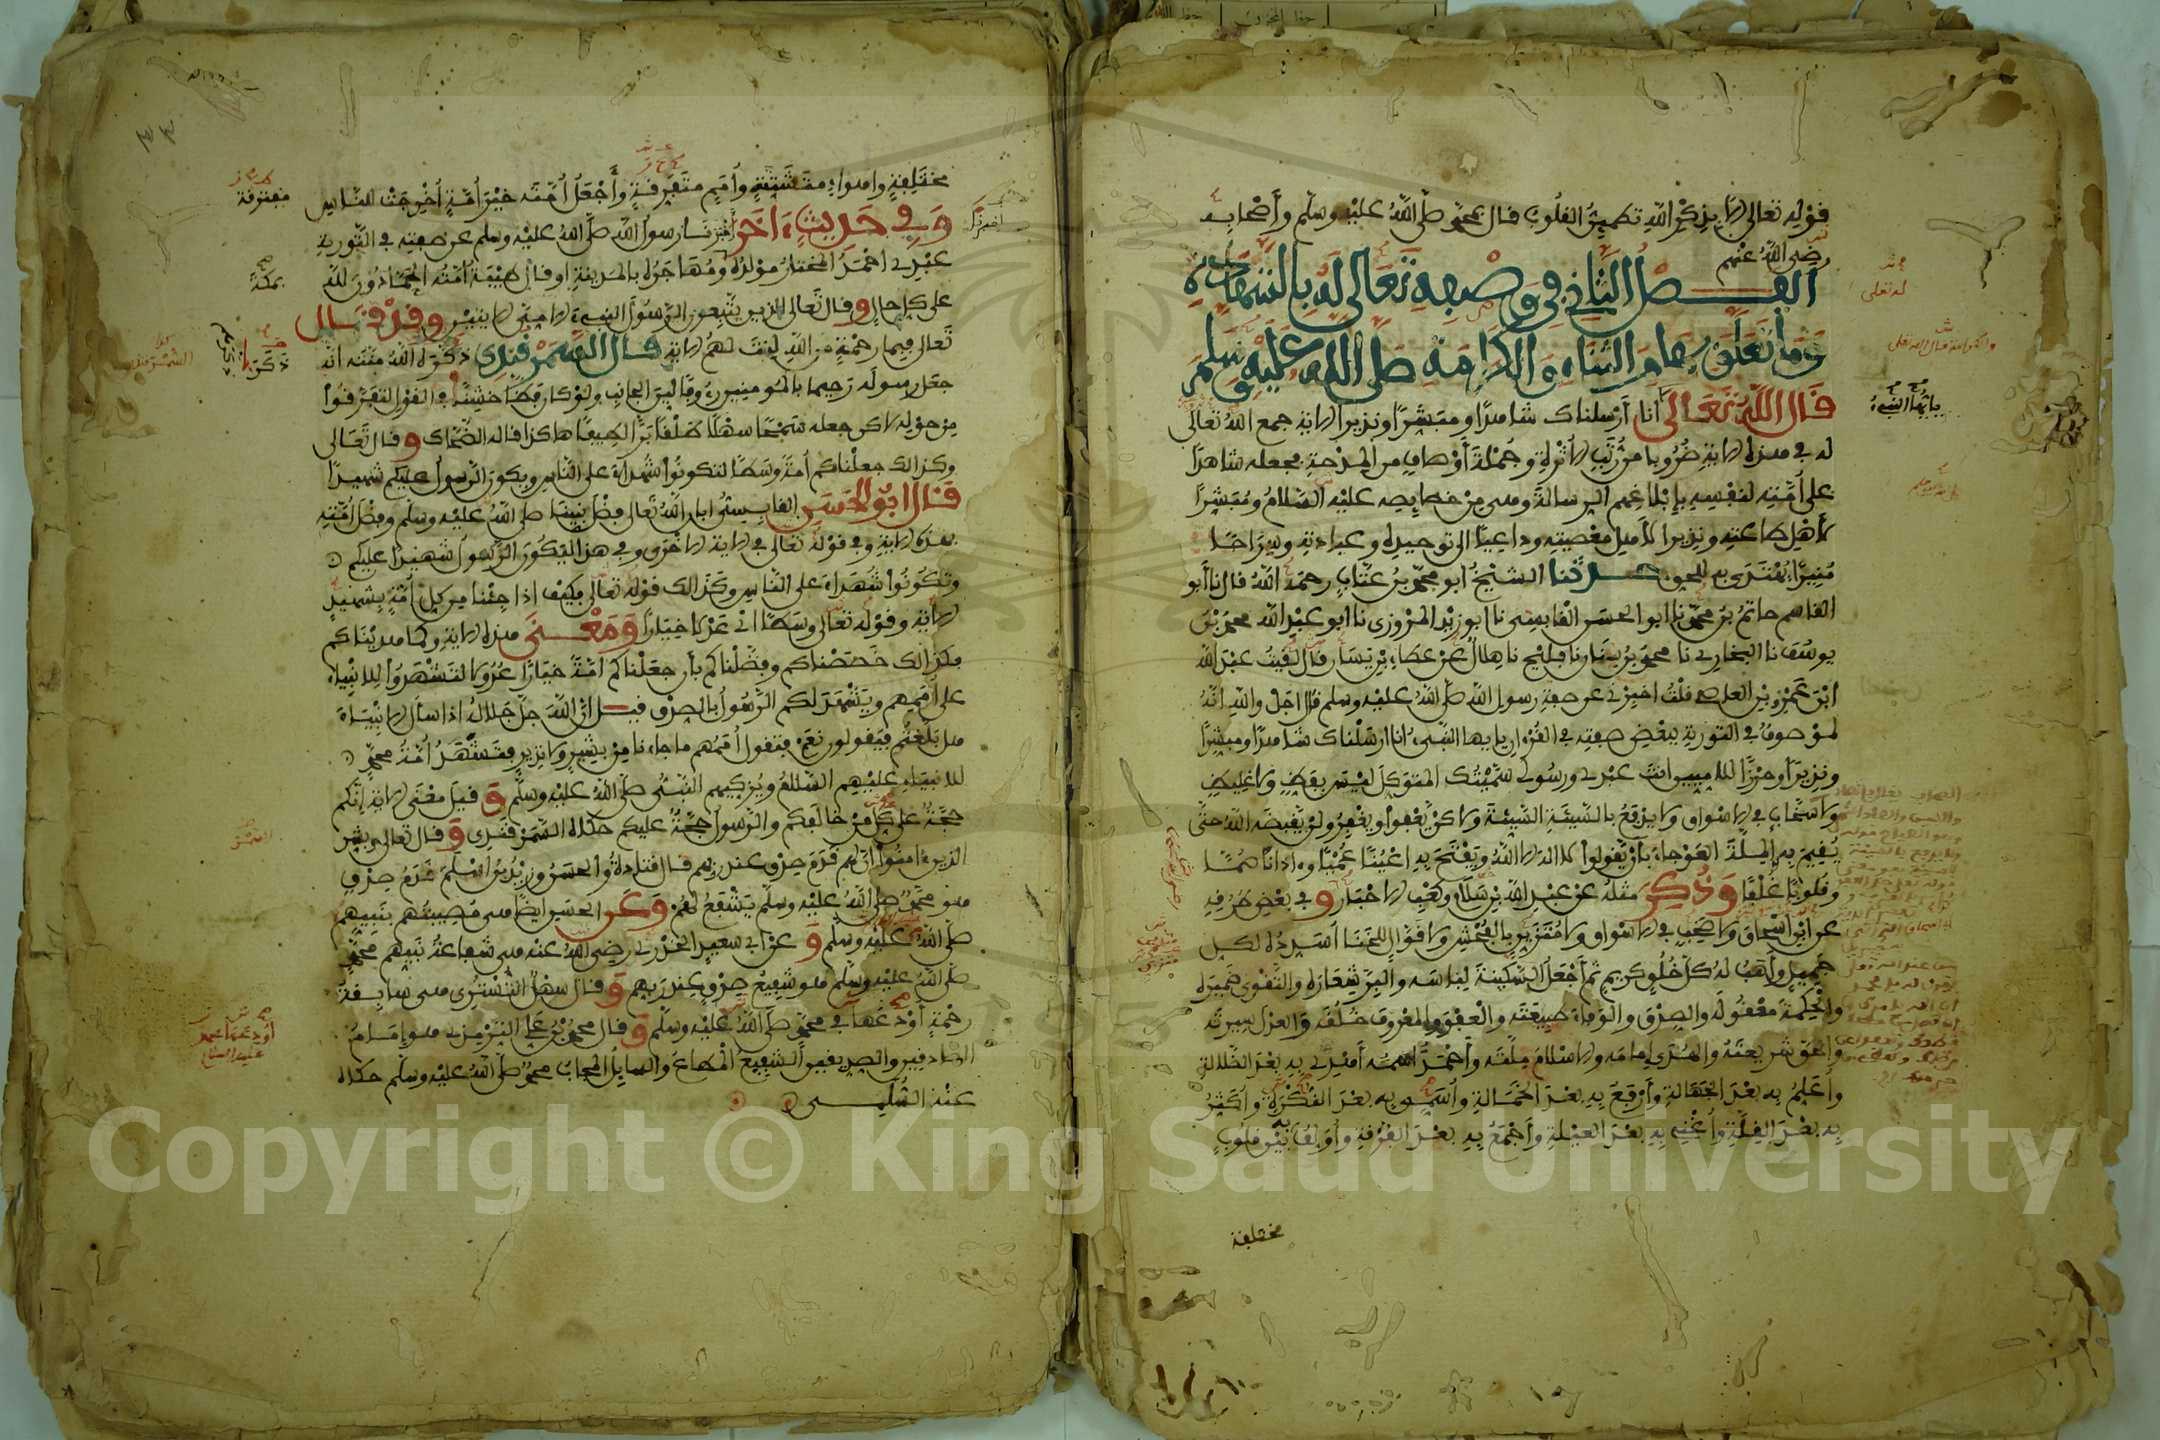 قوله تعالى الا بذكر الله تطمين القلوب قال بمحمد صلى الله عليه وسلم وأصحابه
رضي الله عنهم
الفصل الثاني في وصفه تعالى له بالشهادة
وما تعلق بها من الثناء والكرامة صلى الله عليه وسلم
قال الله تعالى انا أرسلناك شاهدا ومبشرا ونذيرا الاية جمع الله تعالى
له في هذه الاية ضروبا من رتب الاثرة وجملة أوصاف من المدحة فجعله شاهدا
على أمته لنفسه بإبلاغهم الرسالة وهي من خصايصه عليه السلام ومبشرا
لأهل طاعته ونذيرا لأهل معصيته وداعيا الى توحيده وعبادته وسراجا
منيرا يهتدى به للحق حدثنا الشيخ ابو محمد بن عتاب رحمه الله قال نا أبو
القاسم حاتم بن محمد نا ابو الحسن القابسي نا ابو زيد المروزي نا ابو عبد الله محمد بن
يوسف نا البخاري نا محمد بن سنان نا فليح نا هلال عن عطاء بن يسار قال لقيت عبد الله
ابن عمرو بن العاصي قلت اخبرني عن صفة رسول الله صلى الله عليه وسلم قال اجل والله انه
لموصوف في التورية ببعض صفته في القرءان يايها النبيء انا ارسلناك شاهدا ومبشرا
ونذيرا وحرزا للاميين انت عبدي ورسولي سميتك المتوكل ليس بفظ ولا غليظ
ولا سخاب في الاسواق ولا يدفع بالسيئة السيئة ولاكن يعفوا ويغفر ولن يقبضه الله حتى
يقيم به الملة العوجاء بأن يقولوا لا اله الا الله ويفتح به اعينا عميا وءاذانا صما
وقلوبا غلفا وذكر مثله عن عبد الله بن سلام وكعب الاحبار وفي بعض طرقه
عن ابن اسحاق ولا صخب في الاسواق ولا متزين بالفحش ولا قوال للخنا أسدده لكل
جميل وأهب له كل خلق كريم ثم أجعل السكينة لباسه والبر شعاره والتقوى ضميره
والحكمة معقوله والصدق والوفاء طبيعته والعفو والمعروف خلقه والعدل سيرته
والحق شريعته والهدى إمامه والاسلام ملته وأحمد اسمه أهدي به بعد الضلالة
وأعلم به بعد الجهالة وأرفع به بعد الخمالة وأسمي به بعد النكرة وأكثر
به بعد القلة وأغني به بعد العيلة وأجمع به بعد الفرقة وأولف به بين قلوب
مختلفة
له تعالى
يايها النبيء
مختلفة واهواء متشتتة وأمم متفرقة وأجعل أمته خير أمة أخرجت للناس
وفي حديث ءاخر أخبرنا رسول الله صلى الله عليه وسلم عن صفته في التورية
عبدي احمد المختار مولده ومهاجره بالمدينة او قال طيبة أمته الحمادون لله
على كل حال وقال تعالى الذين يتبعون الرسول النبيء الامي الايتين وقد قال
تعالى فبما رحمة من الله لنت لهم الاية قال السمرقندي ذكره الله منته انه
جعل رسوله رحيما بالمومنين رءوفا لين الجانب ولو كان فظا خشنا في القول لتفرقوا
من حوله لاكن جعله سمحا سهلا طلقا برا لطيفا هاكذا قاله الضحاك وقال تعالى
وكذالك جعلناكم أمة وسطا لتكونوا شهداء على الناس ويكون الرسول عليكم شهيدا
قال ابو الحسن القابسي ابان الله تعالى فضل نبينا صلى الله عليه وسلم وفضل أمته
بهذه الاية وفي قوله تعالى في الاية الاخرى وفي هذا ليكون الرسول شهيدا عليكم
وتكونوا شهداء على الناس وكذالك قوله تعالى فكيف اذا جئنا من كل أمة بشهيد
الاية وقوله تعالى وسطا اي عدلا خيارا ومعنى هذه الاية وكما هديناكم
فكذالك خصصناكم وفضلناكم بأن جعلناكم أمة خيارا عدولا لتشهدوا للانبياء
على أممهم ويشهد لكم الرسول بالصدق قيل ان الله جل جلاله اذا سال الانبياء
هل بلغتم فيقولون نعم فتقول أممهم ما جاءنا من بشير ولا نذير فتشهد أمة محمد
للانبياء عليهم السلام ويزكيهم النبي صلى الله عليه وسلم وقيل معنى الاية إنكم
حجة على كل من خالفكم والرسول حجة عليكم حكاه السمرقندي وقال تعالى وبشر
الذين ءامنوا أن لهم قدم صدق عند ربهم قال قتادة والحسن وزيد بن أسلم قدم صدق
هو محمد صلى الله عليه وسلم يشفع لهم وعن الحسن ايضا هي مصيبتهم بنبيهم
صلى الله عليه وسلم وعن ابي سعيد الخدري رضي الله عنه هي شفاعة نبيهم محمد
صلى الله عليه وسلم هو شفيع صدق عند ربهم وقال سهل التستري هي سابقة
رحمة أودعها في محمد صلى الله عليه وسلم وقال محمد بن علي الترمذي هو إمام
الصادقين والصديقين الشفيع المطاع والسايل المجاب محمد صلى الله عليه وسلم حكاه
عنه السلمي
مفترقة
بمكة
Copyright © King Saud University